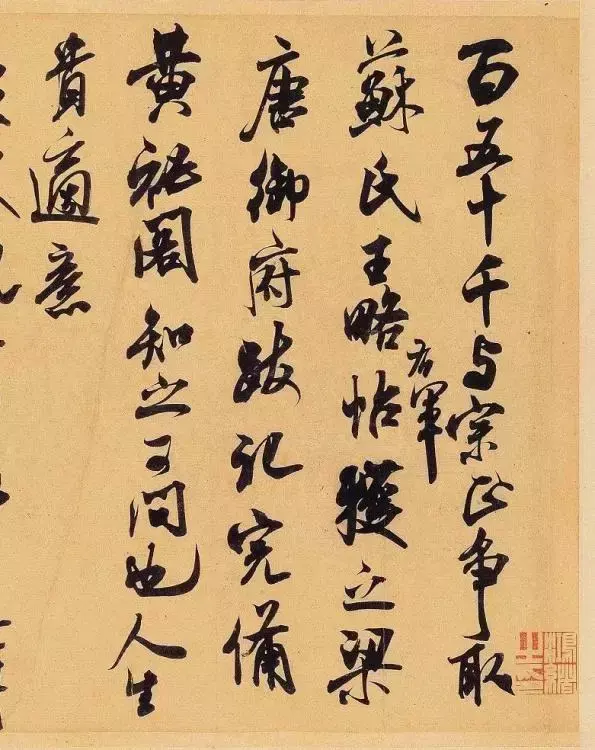 百五十千与宗正争取
蘇氏王略帖右軍獲之梁
唐御府跋記完備
黃祕閣知之可問也人生
貴適意